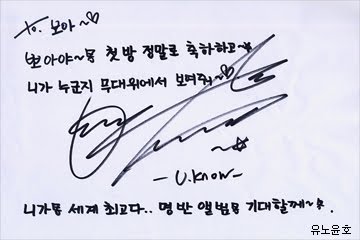 To. 보아~♡
뽀아야~ 첫방 정말로 축하하고~
니가 누군지 무대위에서 보여줘~♡
~☆
-U.Know-
니가 세계 최고다.. 명반 앨범 기대할께~.
유노윤호